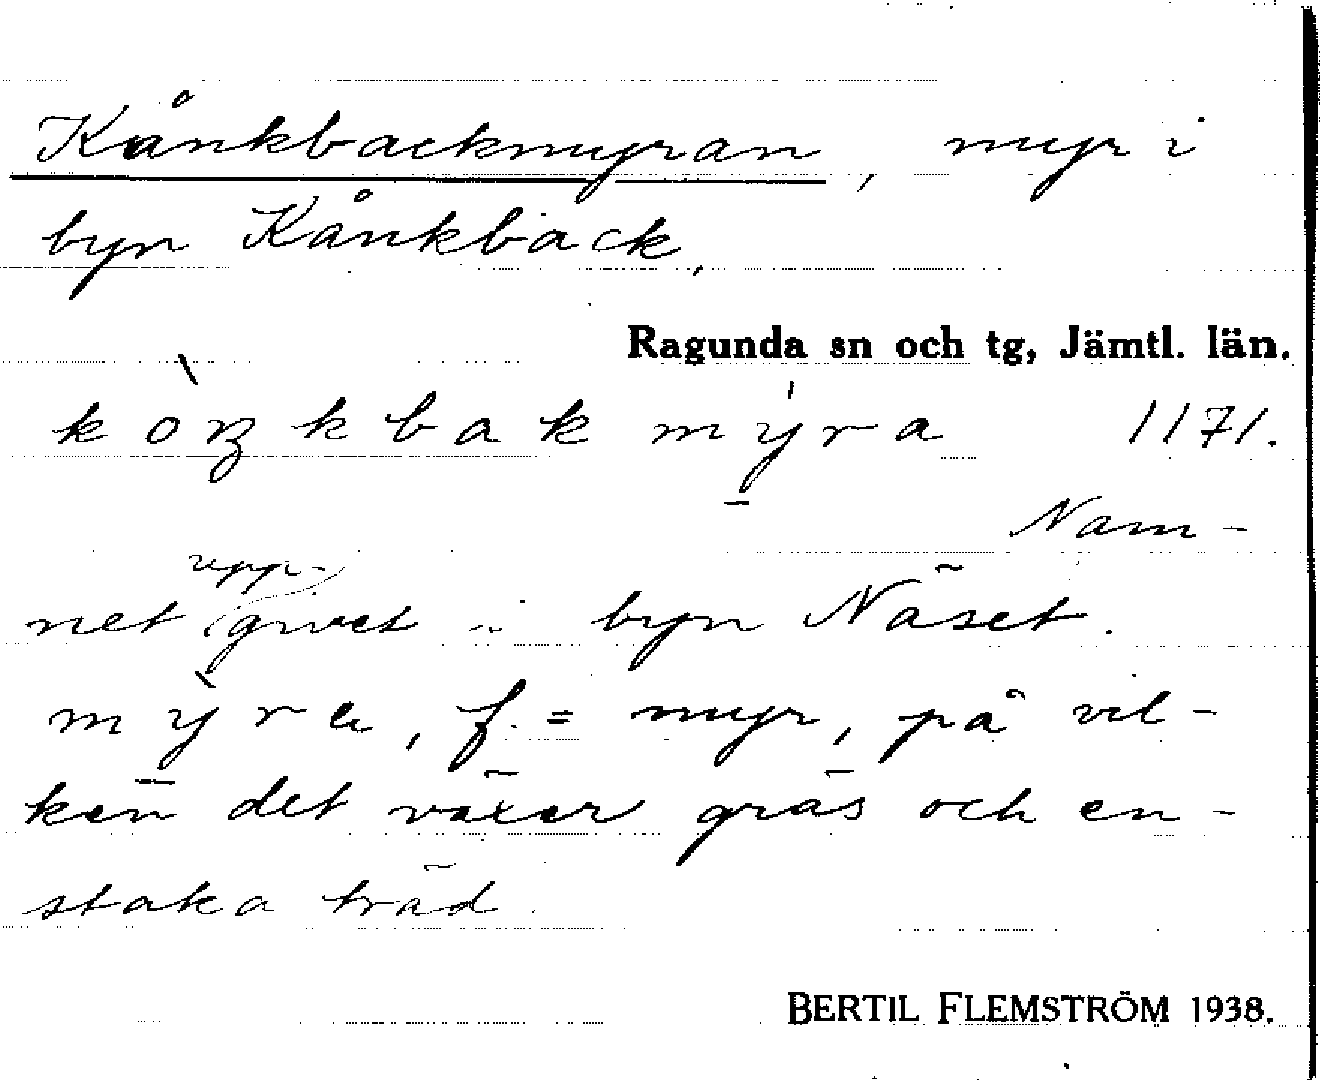 Kånkbackmyran, myr i
byn Kånkback.
Ragunda sn och tg, Jämtl. län.
kòŋkbakmy̍ra 1171.
Nam-
net uppgivet i byn Näset.
mỳra, f. = myr, på vil-
ken det växer gräs och en-
staka träd.
BERTIL FLEMSTRÖM 1938.